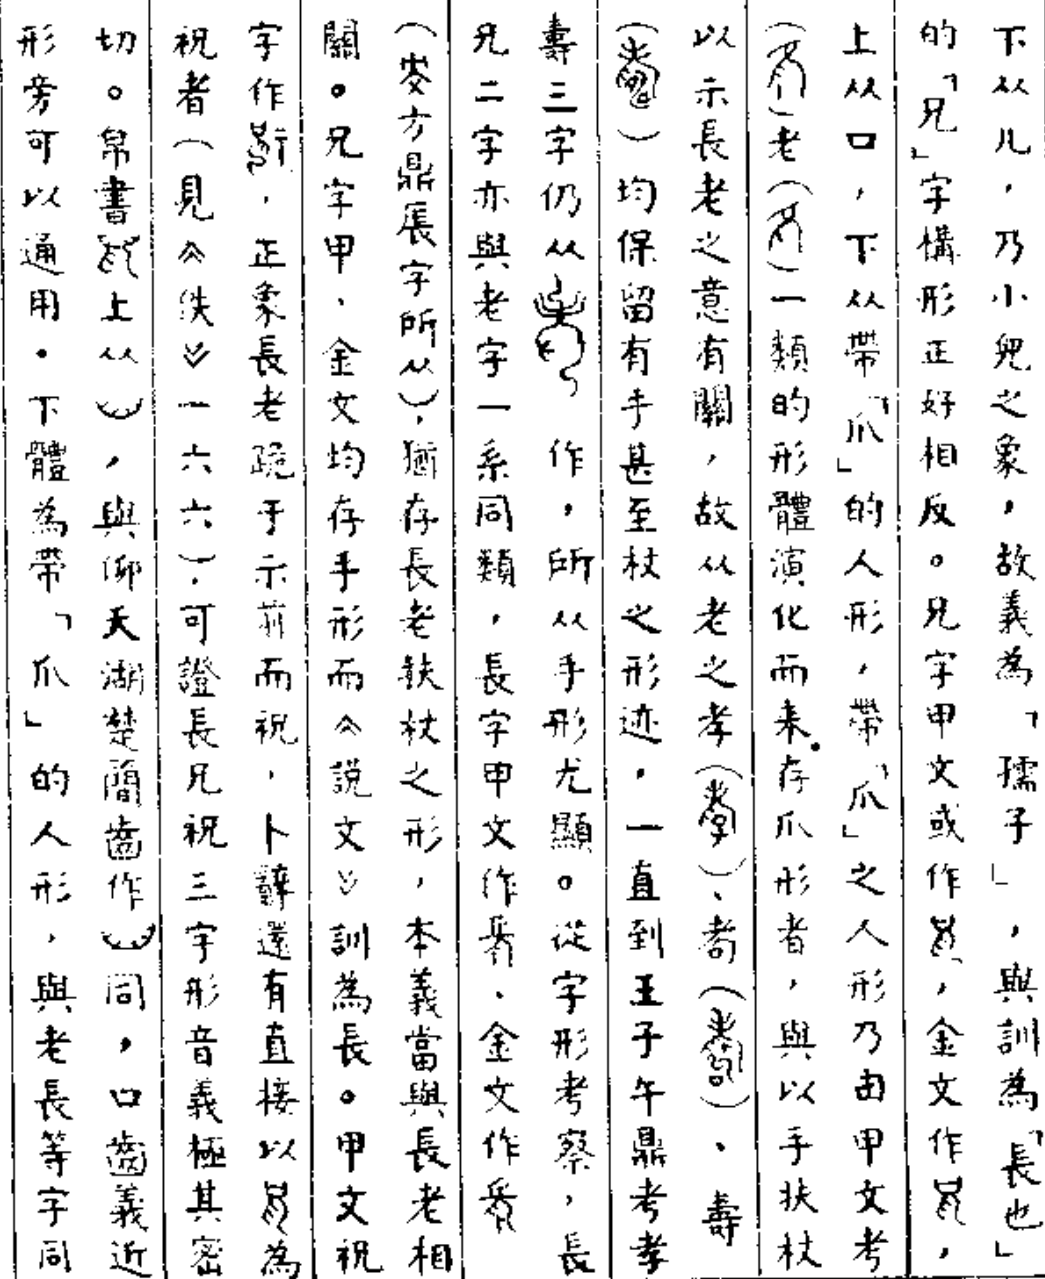 下从儿，乃小兒之象，故義為「孺子」，與訓為「長也」
的「兄」字構形正好相反。兄字甲文或作，金文作，
上从口，下从帶「爪」的人形，帶「爪」之人形乃由甲文考
（）老（）一類的形體演化而来．存爪形者，與以手扶杖
以示長老之意有關，故从老之孝（）、耇（）、壽
（）均保留有手甚至杖之形迹，一直到王子午鼎考孝
壽三字仍从作，所从手形尤顯。從字形考察，長
兄二字亦與老字一系同類，長字甲文作、金文作
（方鼎字所从），猶存長老扶杖之形，本義當與長老相
關。兄字甲、金文均存手形而《說文》訓為長。甲文祝
字作，正象長老跪于示前而祝，卜辭還有直接以為
祝者（見《佚》一六六），可證長兄祝三字形音義極其密
切。帛書上从，與仰天湖楚簡齒作同，口齒義近
形旁可以通用．下體為帶「爪」的人形，與老長等字同